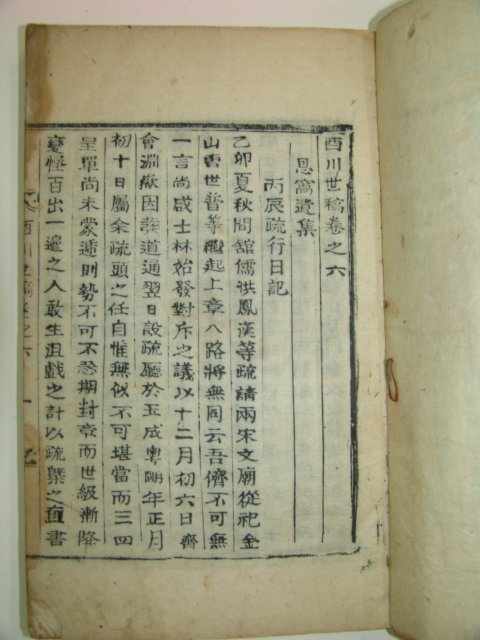 酉川世稿卷之六
思窩遺集
丙辰疏行日記
乙卯夏秋間舘儒洪鳳漢等疏請兩宋文廟從祀金
山曺世普等繼起上章八路將無同云吾儕不可無
一言尚咸士林始發對斥之議以十二月初六日齊
會淵嶽因發道通翌日設疏廳於玉成粤明年正月
初十日屬余疏頭之任自惟無似不可堪當而三四
呈單尚未蒙遞則勢不可不忝期封章而世級漸降
變怪百出一邊之人敢生沮戲之計以疏槩之直書
酉川世稿卷之六 一